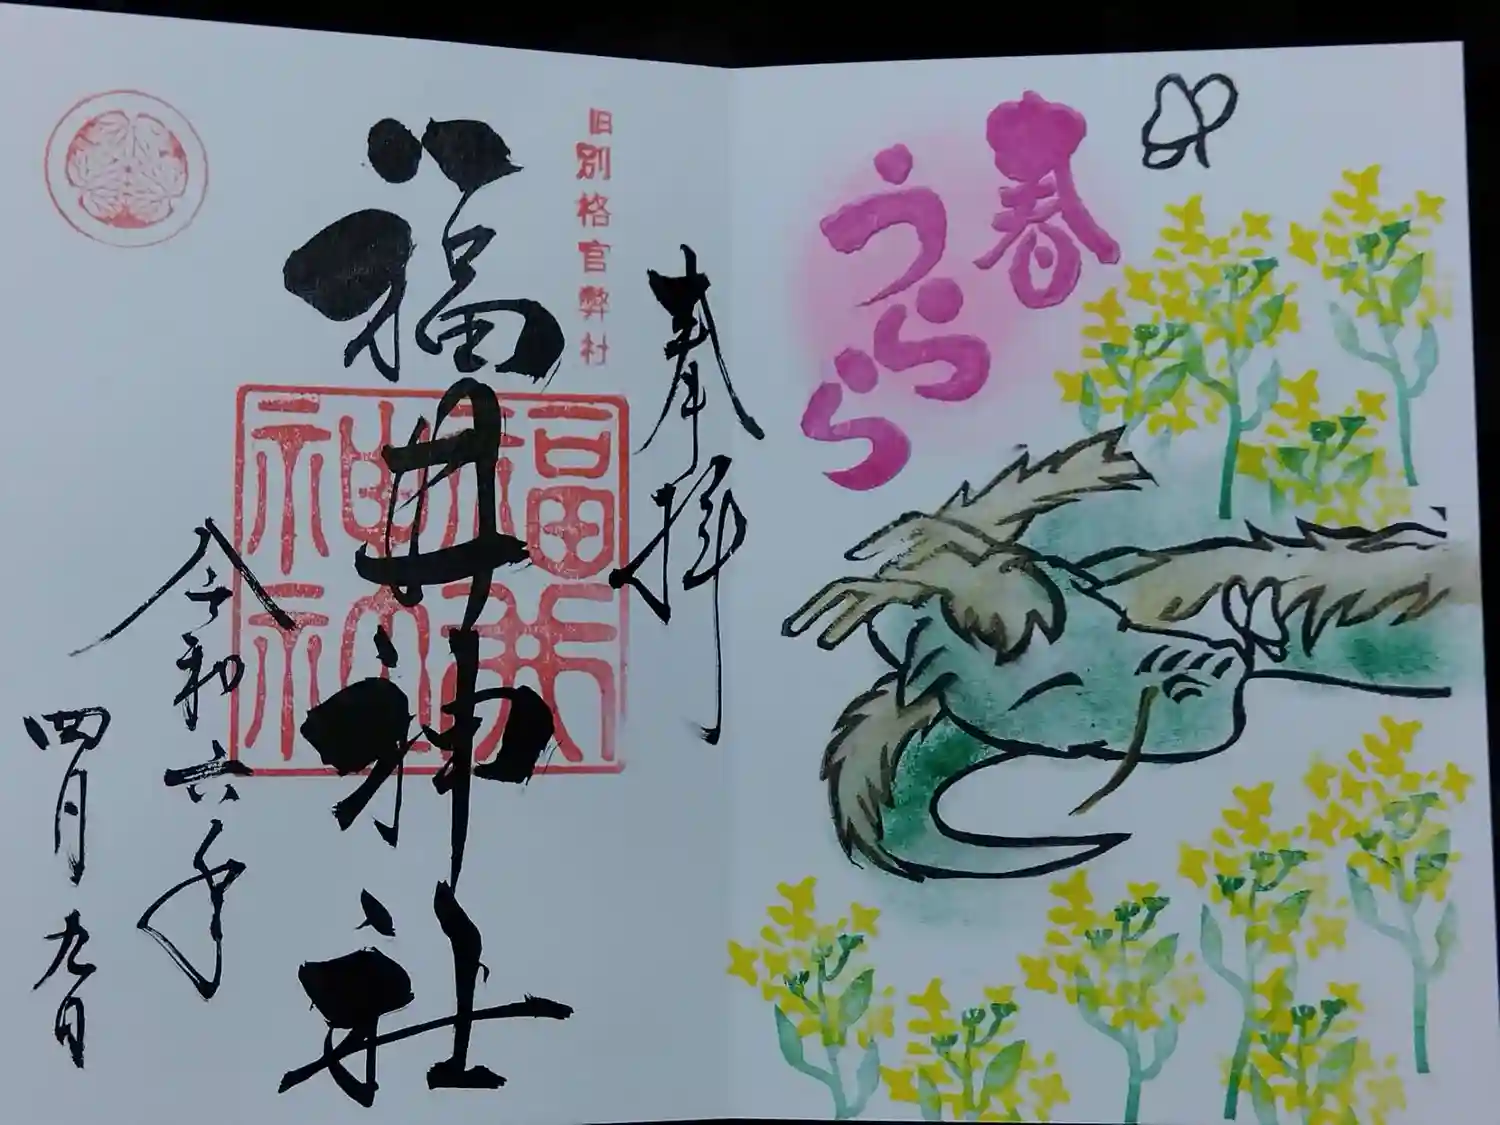 春
うらら
ら
奉拝
旧別格官弊社
福井神社
福井神社
令和六年
四月九日